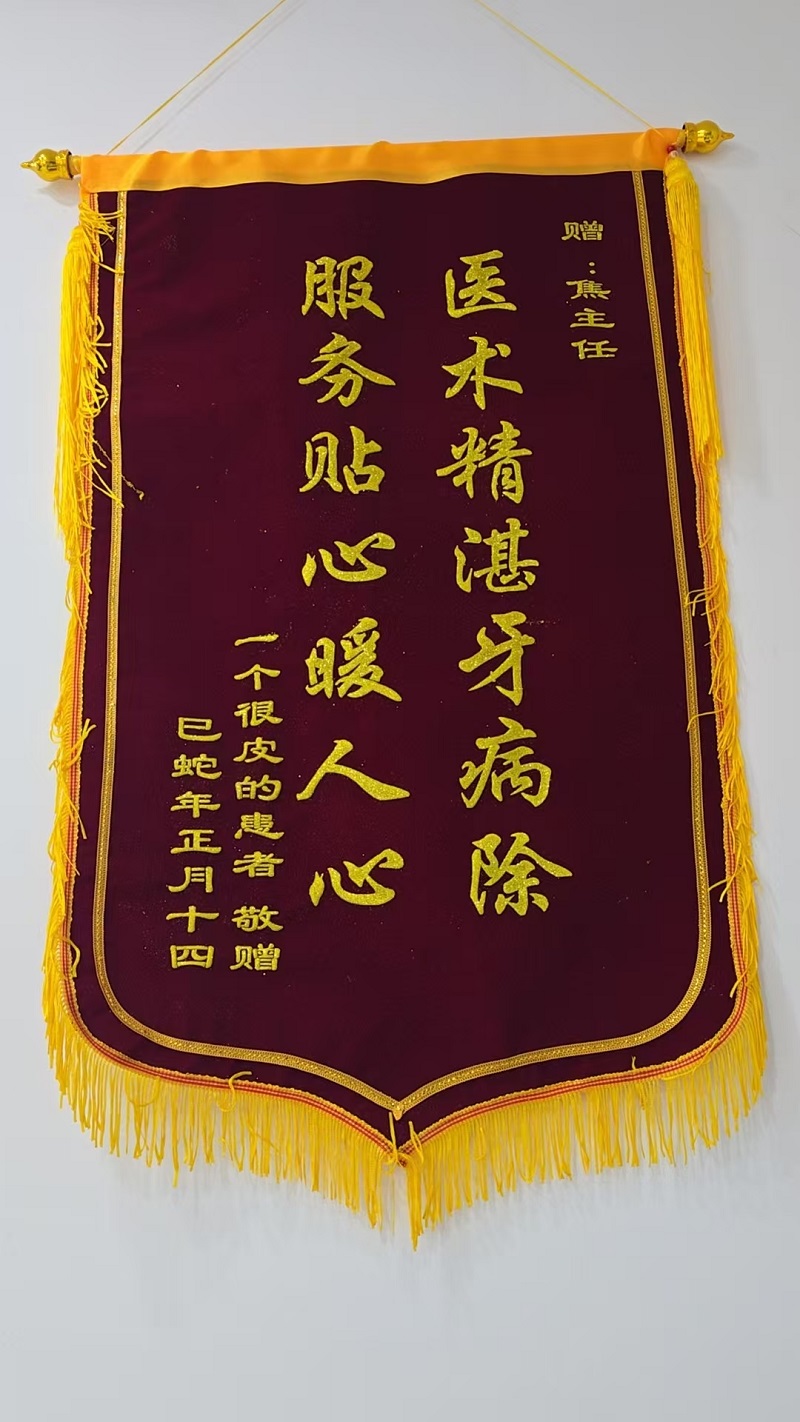 赠：焦主任
医术精湛牙病除
服务贴心暖人心
一个很皮的患者 敬赠
巳蛇年正月十四